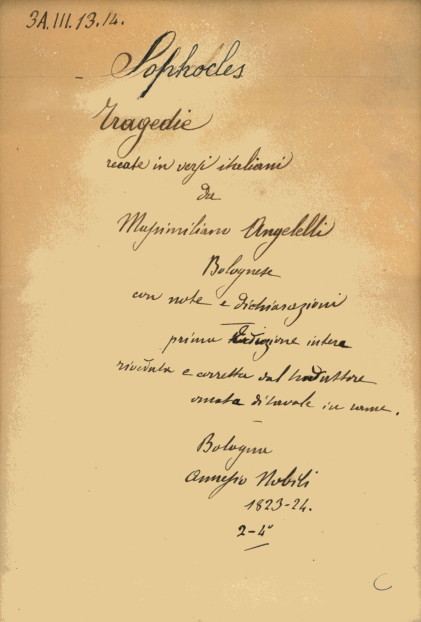 3A.III.13.14.
Sophocles
Tragedie
recate in versi italiani
da
Massimiliano Angelelli
Bolognese
con note e dichiarazioni
prima Edizione intera
riveduta e corretta dal traduttore
ornata di tavole in rame.
Bologna
Annesio Nobili
1823-24.
2-4°